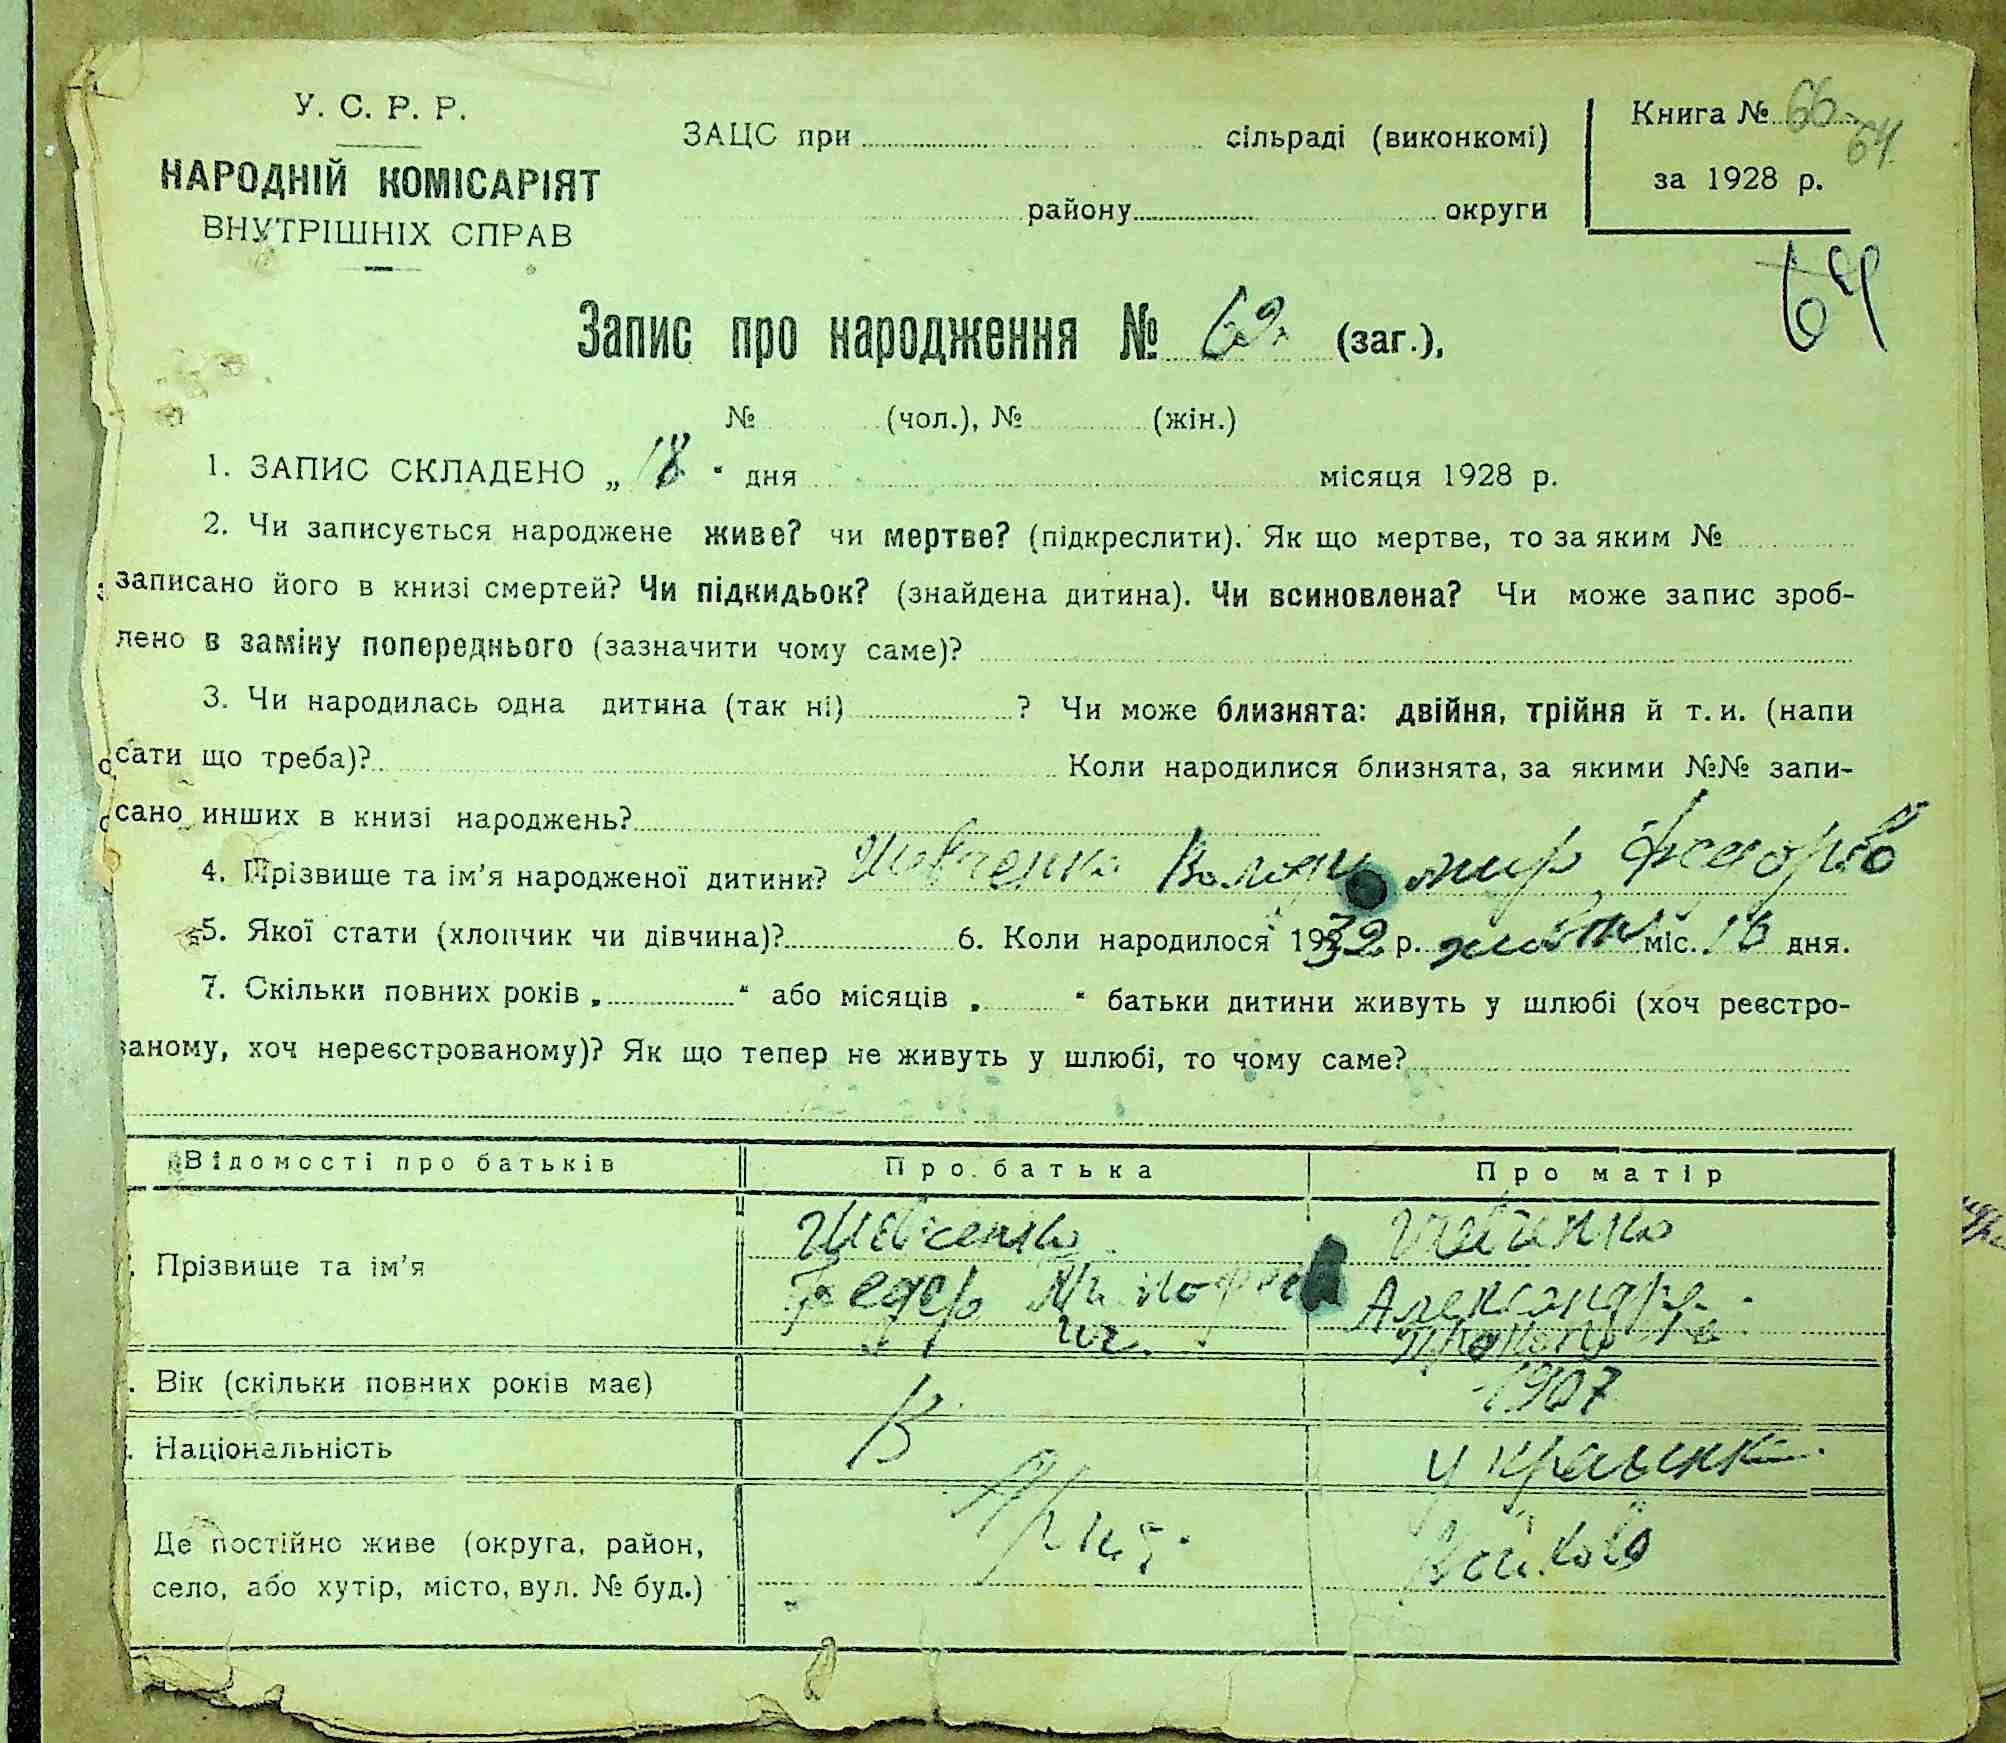 У. С. Р. Р.
НАРОДНІЙ КОМІСАРІЯТ
ВНУТРІШНІХ СПРАВ
ЗАЦС при сільраді (виконкомі)
району округи
Книга № 66
64
за 1928 р.
64
Запис про народження № 62 (заг.),
№ (чол.), № (жін.)
1. ЗАПИС СКЛАДЕНО „ 18 “ дня місяця 1928 р.
2. Чи записується народжене живе? чи мертве? (підкреслити). Як що мертве, то за яким №
записано його в книзі смертей? Чи підкидьок? (знайдена дитина). Чи всиновлена? Чи може запис зроб-
лено в заміну попереднього (зазначити чому саме)?
3. Чи народилась одна дитина (так ні) ? Чи може близнята: двійня, трійня й т. и. (напи
сати що треба)? Коли народилися близнята, за якими №№ запи-
сано инших в книзі народжень?
4. Прізвище та ім'я народженої дитини? Шевченко Володимир Федоров
5. Якої стати (хлопчик чи дівчина)? 6. Коли народилося 1932 р. жовтн міс. 16 дня.
7. Скільки повних років „ “ або місяців „ “ батьки дитини живуть у шлюбі (хоч реєстро-
ваному, хоч нереєстрованому)? Як що тепер не живуть у шлюбі, то чому саме?
Відомості про батьків Про батька Про матір
Прізвище та ім'я Шевченко Шевченко
Федор Александра
Вік (скільки повних років має) 1907
Національність Украинка
Де постійно живе (округа, район,
село, або хутір, місто, вул. № буд.)